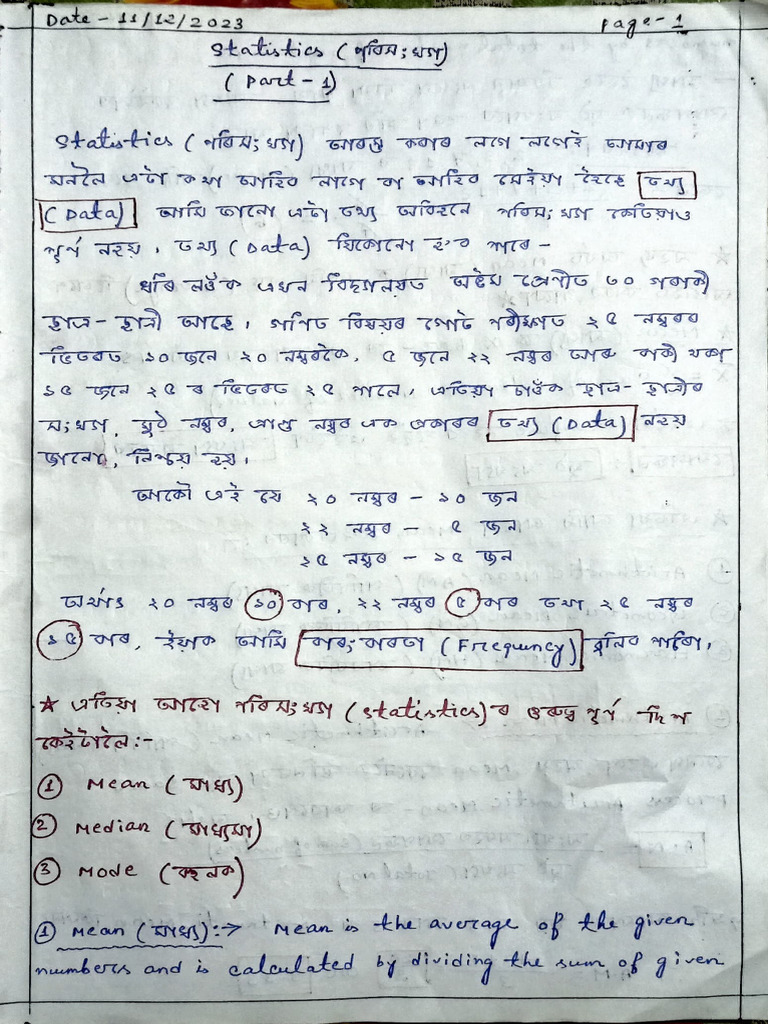 Date - 11/12/2023 Page - 1
Statistics (পৰিসংখ্যা)
(Part - 1)
Statistics (পৰিসংখ্যা) আৰম্ভ কৰাৰ লগে লগেই আমাৰ
মনলৈ এটা কথা আহিব লাগে বা আহিব সেইয়া হৈছে তথ্য
(Data) আমি জানো এটা তথ্য অবিহনে পৰিসংখ্যা কেতিয়াও
পূৰ্ণ নহয়। তথ্য (Data) যিকোনো হ'ব পাৰে -
ধৰি লওঁক এখন বিদ্যালয়ত অষ্টম শ্ৰেণীত ৩০ গৰাকী
ছাত্ৰ - ছাত্ৰী আছে। গণিত বিষয়ৰ গোট পৰীক্ষাত ২৫ নম্বৰৰ
ভিতৰত ১০ জনে ২০ নম্বৰকৈ, ৫ জনে ২২ নম্বৰ আৰু বাকী থকা
১৫ জনে ২৫ ৰ ভিতৰত ২৫ পালে। এতিয়া চাওঁক ছাত্ৰ - ছাত্ৰীৰ
সংখ্যা, মুঠ নম্বৰ, প্ৰাপ্ত নম্বৰ এক প্ৰকাৰৰ তথ্য (Data) নহয়
জানো, নিশ্চয় হয়।
আকৌ এই যে ২০ নম্বৰ - ১০ জন
২২ নম্বৰ - ৫ জন
২৫ নম্বৰ - ১৫ জন
অৰ্থাৎ ২০ নম্বৰ ১০ বাৰ, ২২ নম্বৰ ৫ বাৰ তথা ২৫ নম্বৰ
১৫ বাৰ, ইয়াক আমি বাৰংবাৰতা (Frequency) বুলিব পাৰো।
★ এতিয়া আহো পৰিসংখ্যা (Statistics) ৰ গুৰুত্ব পূৰ্ণ দিশ
কেইটালৈ :-
① Mean (মাধ্য)
② Median (মাধ্যমা)
③ Mode (বহুলক)
① Mean (মাধ্য) :→ Mean is the average of the given
numbers and is calculated by dividing the sum of given